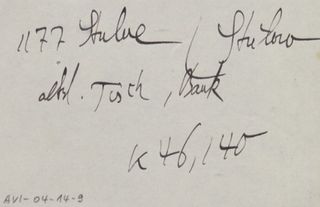 1177 Stube / Stulow
altd. Tisch, Bank
K 46, 140
AVI-04-14-9